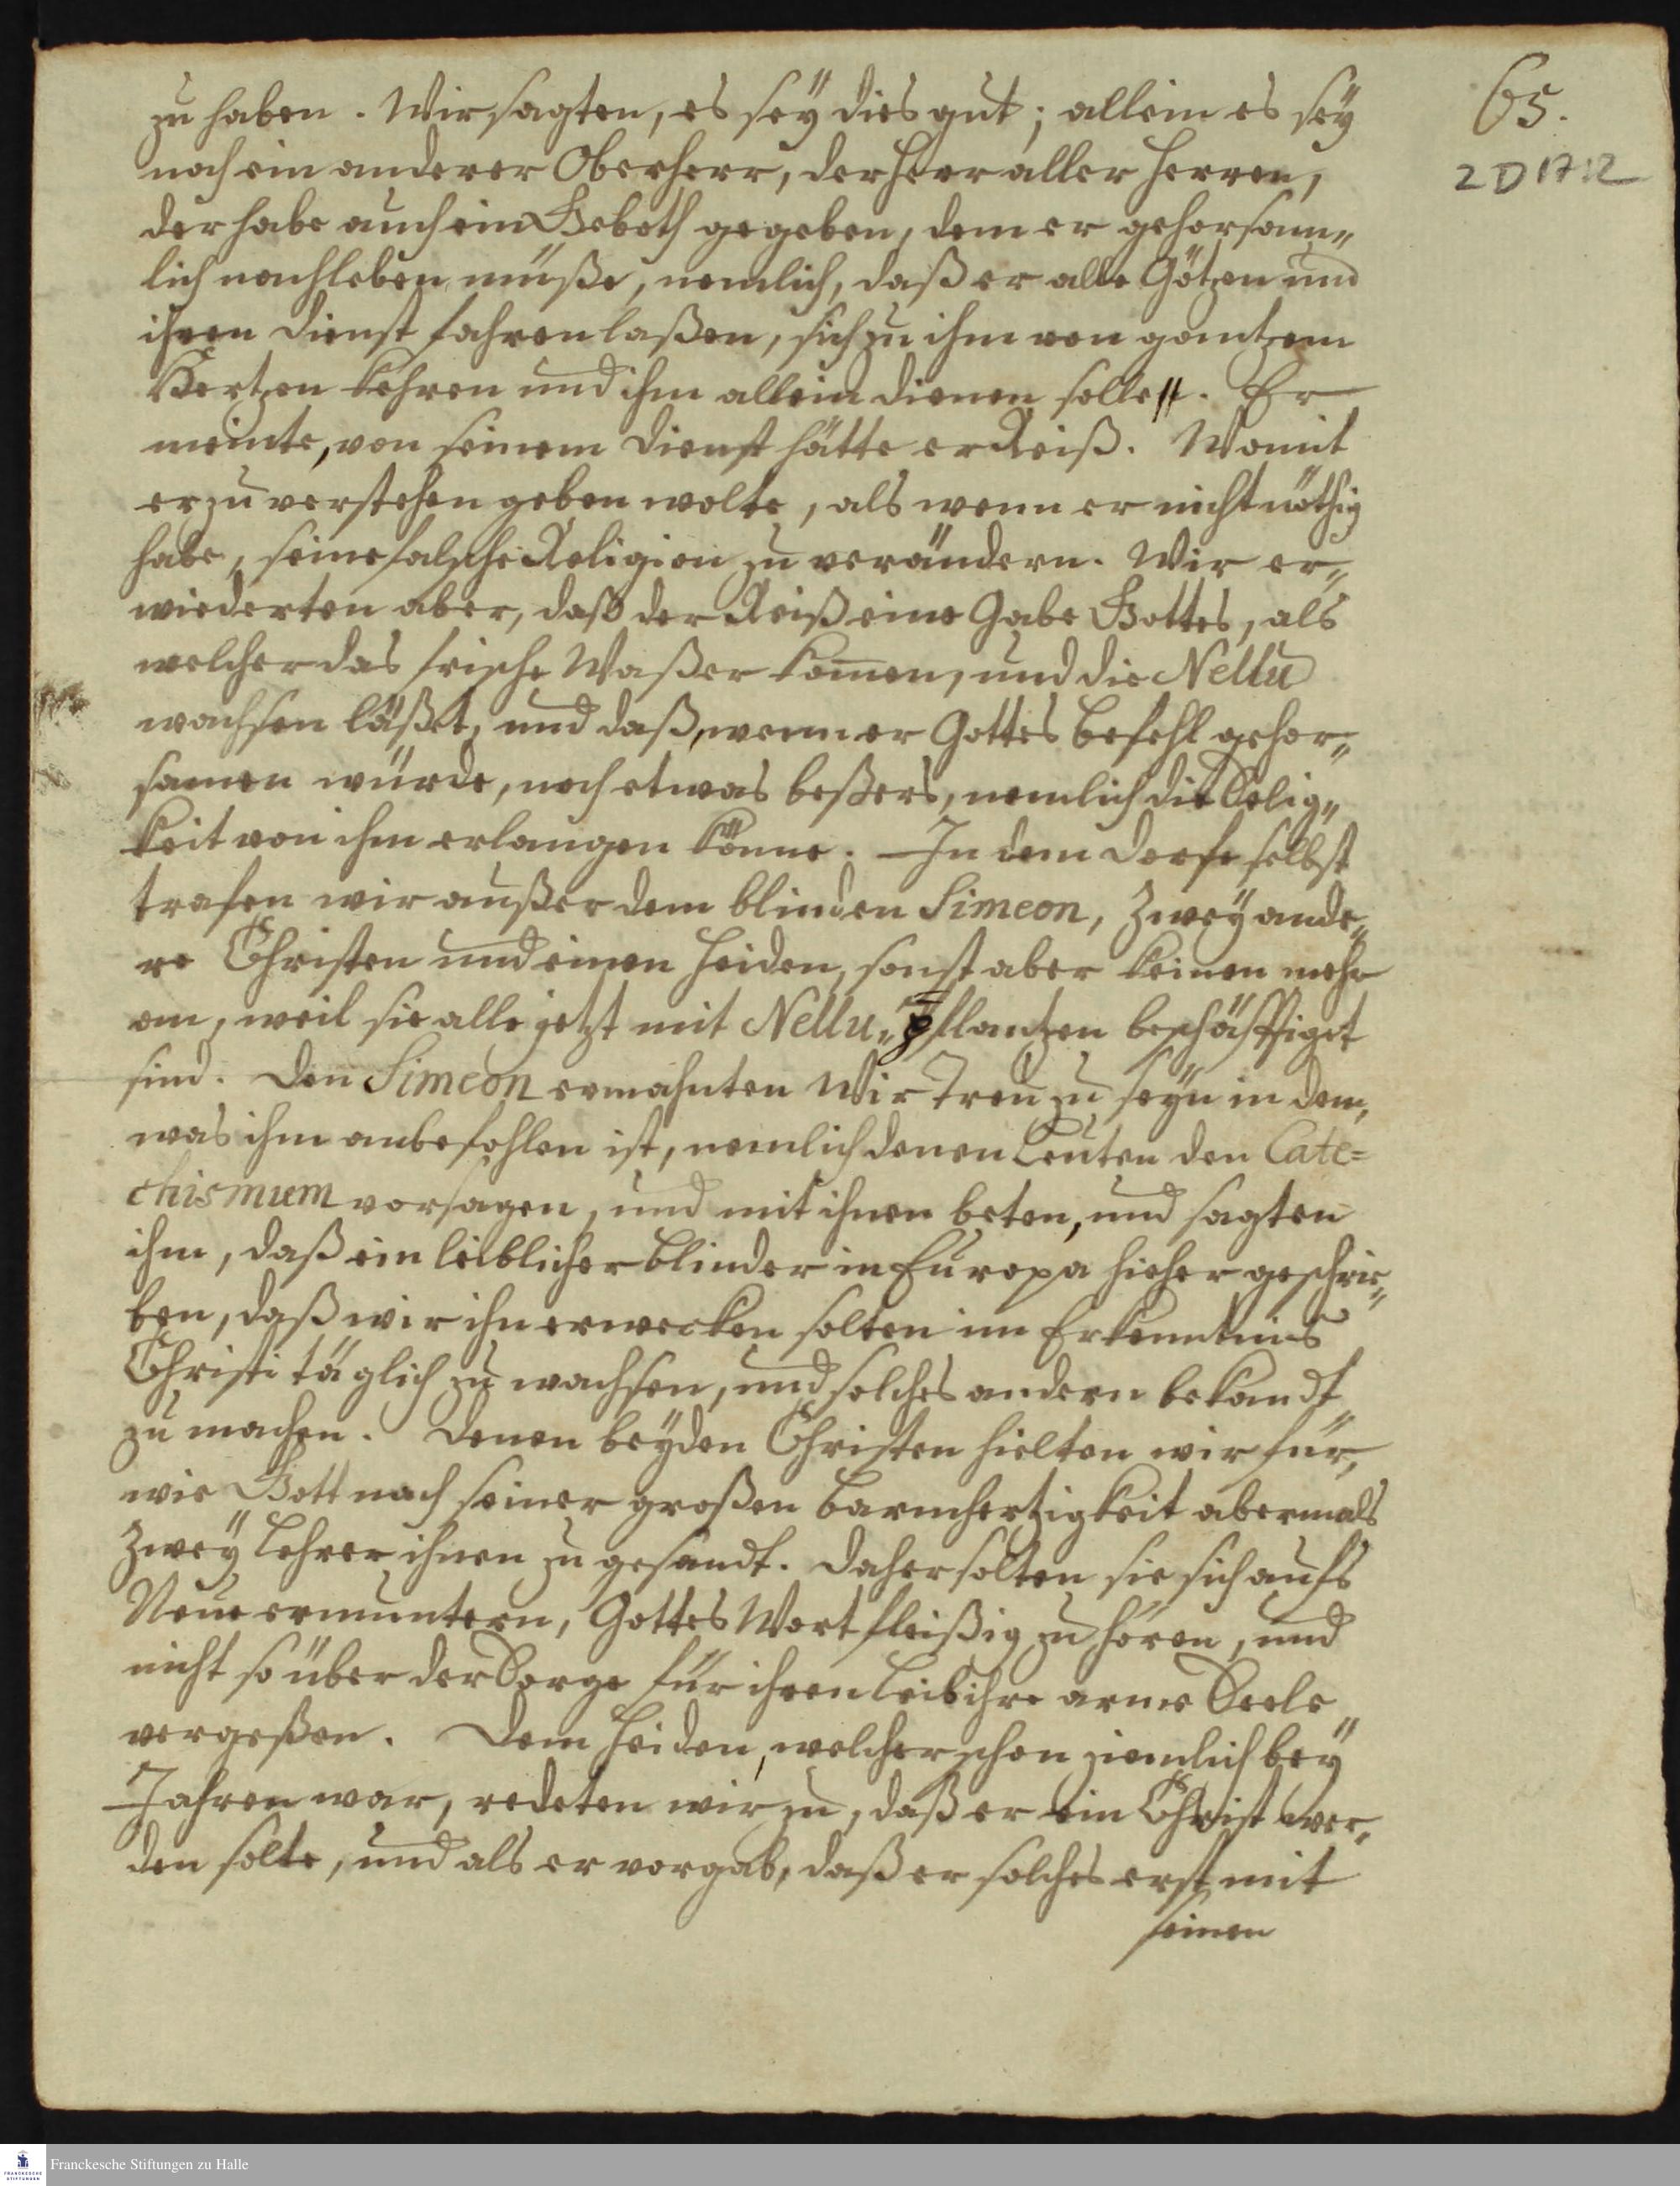 65.
2 D 17:12
zu haben. Wir sagten, es seÿ dies gut; allein es seÿ
noch ein anderer Oberherr, der Herr aller Herren,
der habe auch ein Geboth gegeben, dem er gehorsam„
lich nachleben müße, nemlich, daß er alle Götzen und
ihren Dienst fahren laßen, sich zu ihm von gantzem
Hertzen kehren und ihm allein dienen solle. Er
meinte, von seinem Dienst hätte er Reiß. Womit
er zu verstehen geben wolte, als wenn er nicht nöthig
habe, seine falsche Religion zu verändern. Wir er„
wiederten aber, daß der Reiß eine Gabe Gottes, als
welcher das frische Waßer kom̄en, und die Nellu
wachsen läßet, und daß, wenn er Gottes Befehl gehor„
samen würde, noch etwas beßers, nemlich die Selig„
keit von ihm erlangen könne. In dem Dorfe selbst
trafen wir außer dem blinden Simeon, zweÿ ande„
re Christen und einen Heiden, sonst aber keinen mehr
an, weil sie alle jetzt mit Nellu„Pflantzen beschäfftiget
sind. Den Simeon ermahnten Wir treu zu seÿn in dem,
was ihm anbefohlen ist, nemlich denen Leuten den Cate=
chismum vorsagen, und mit ihnen beten, und sagten
ihm, daß ein leiblicher Blinder in Europa hieher geschrie„
ben, daß wir ihn erwecken solten im Erkenntniß
Christi täglich zu wachsen, und solches andern bekandt
zu machen. Denen beÿden Christen hielten wir für,
wie Gott nach seiner großen Barmhertzigkeit abermals
zweÿ Lehrer ihnen zu gesandt. Daher solten sie sich aufs
Neue ermuntern, Gottes Wort fleißig zu hören, und
nicht so über der Sorge für ihren Leib ihre arme Seele
vergeßen. Dem Heiden, welcher schon ziemlich beÿ
Jahren war, redeten wir zu, daß er ein Christ wer„
den solte, und als er vorgab, daß er solches erst mit
seinen
Franckesche Stiftungen zu Halle
FRANCKESCHE
STIFTUNGEN